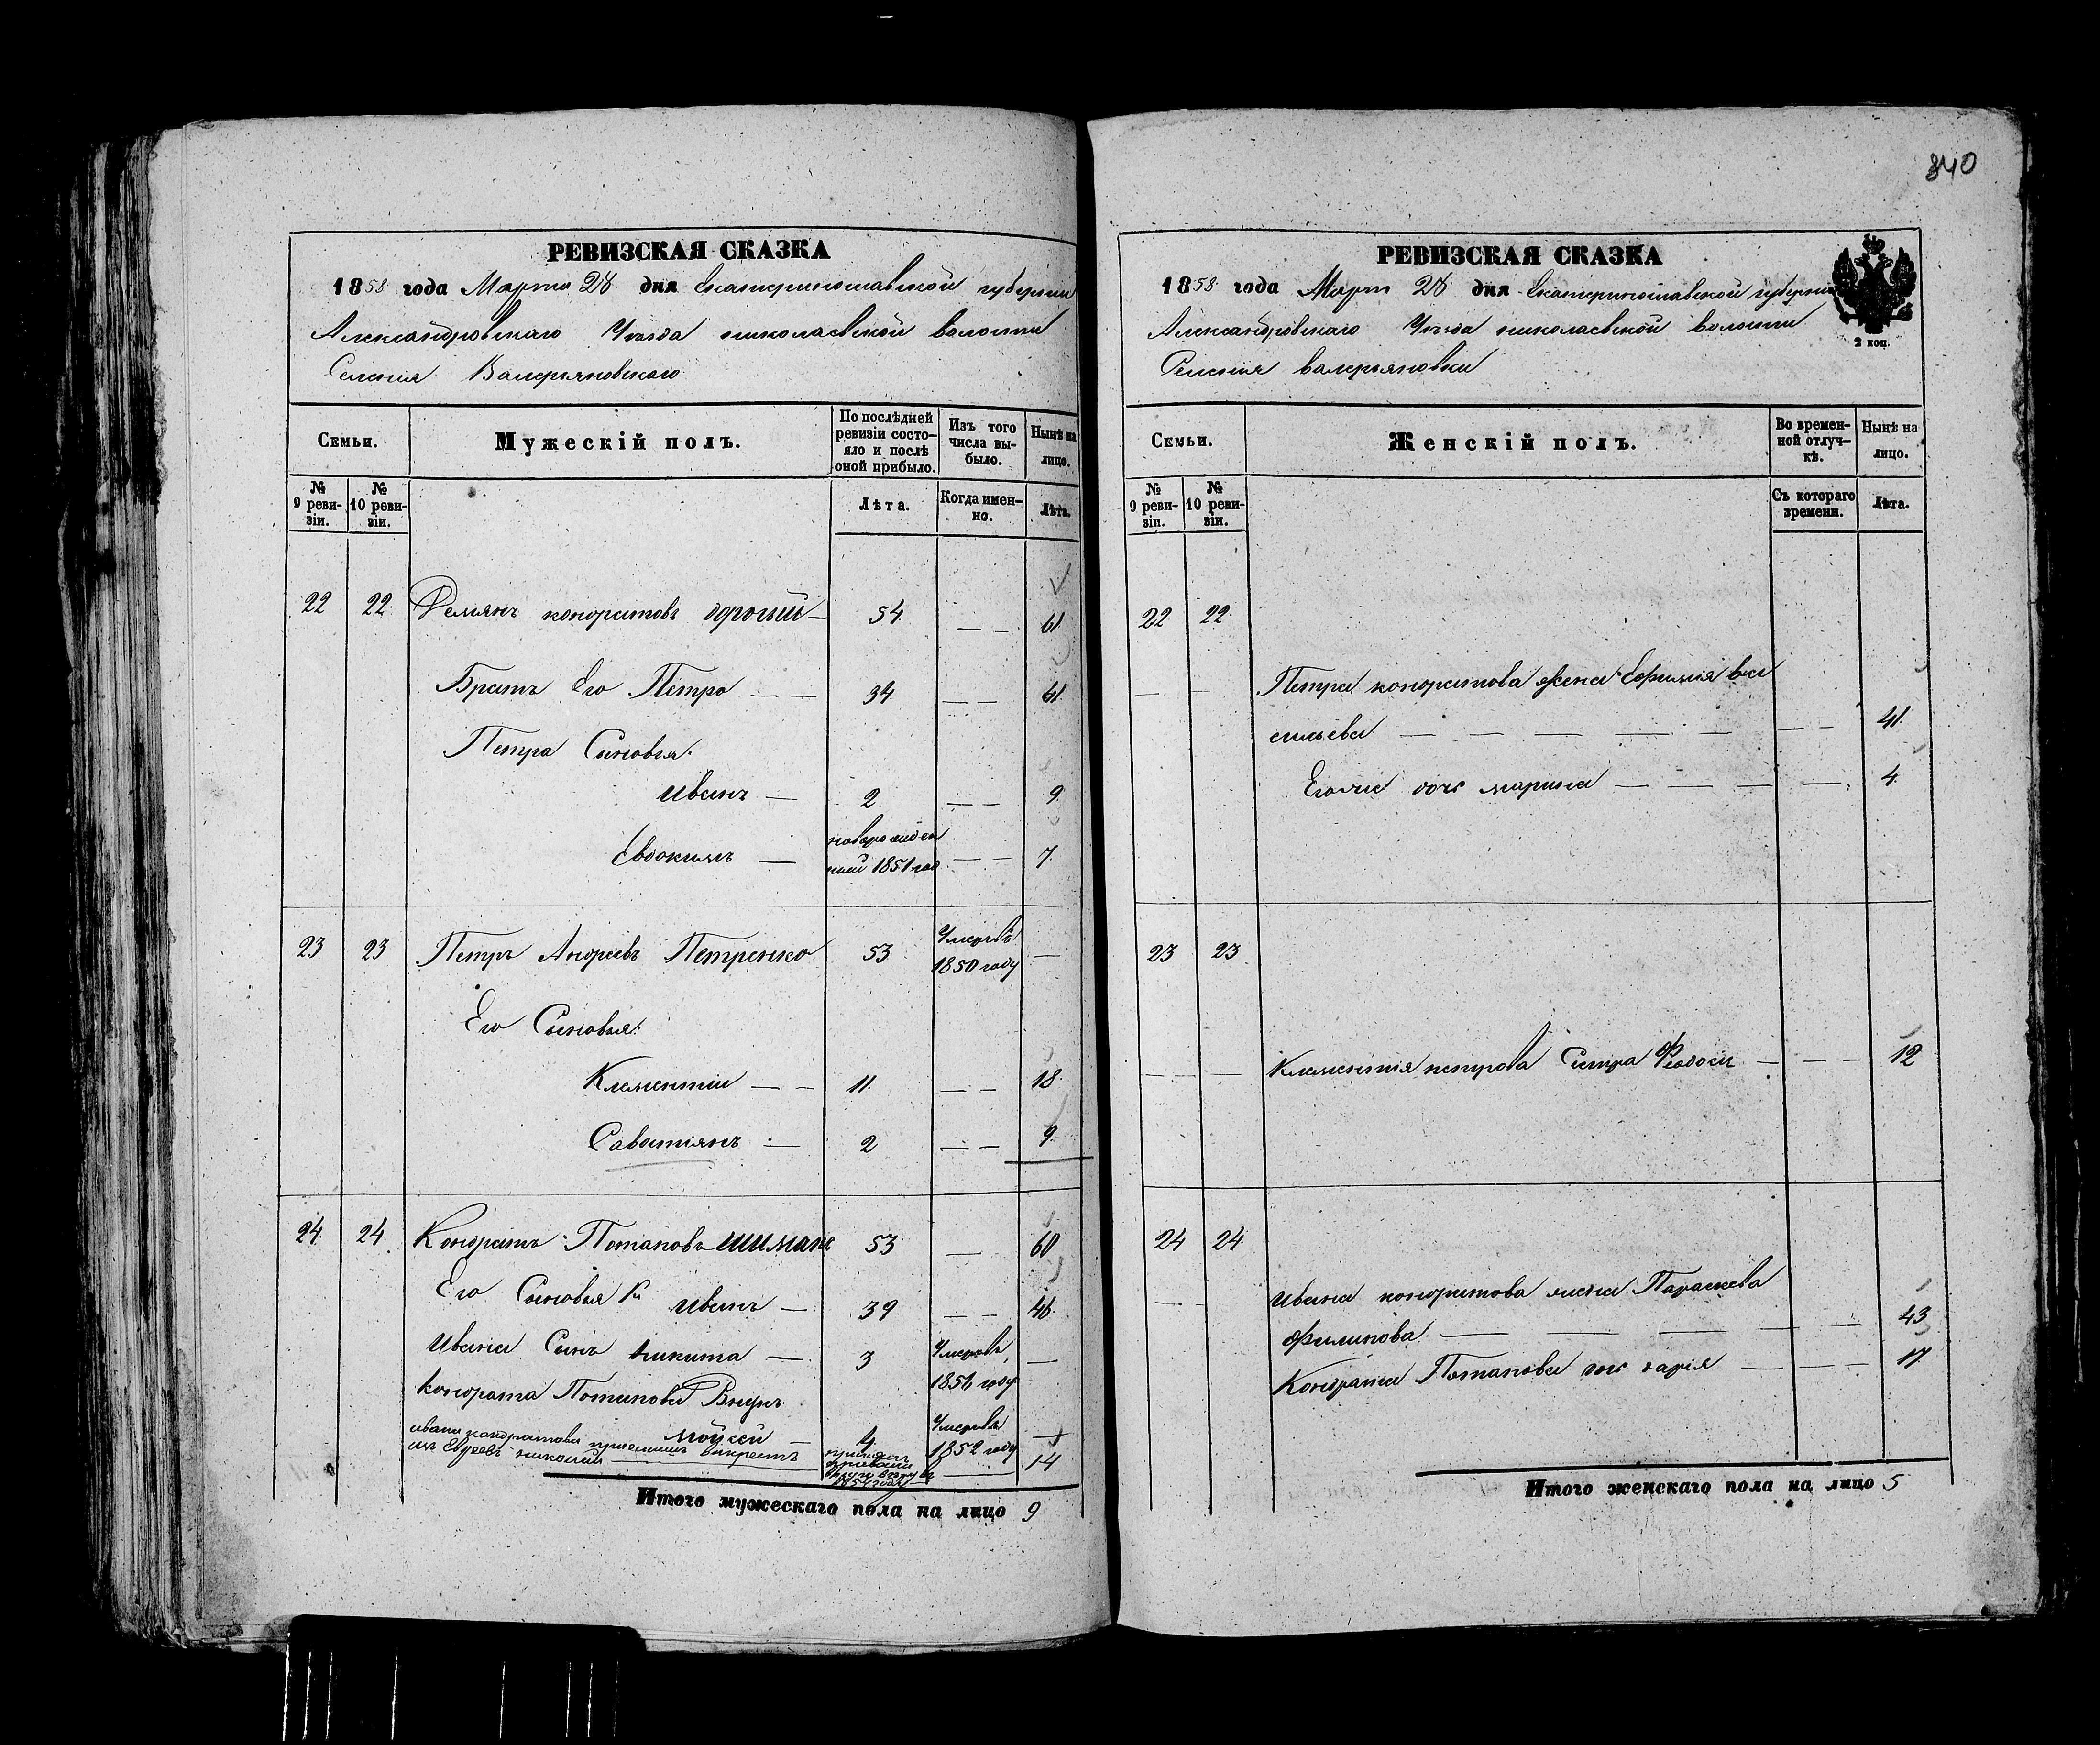 840
РЕВИЗСКАЯ СКАЗКА
1858 года Марта 28 дня Екатеринославской губернии
Александровскаго Уезда николаевской волости
Селения Валерьяновскаго
Семьи.
Мужескій полъ.
По послѣдней ревизіи состояло и послѣ оной прибыло.
Изъ того числа выбыло.
Нынѣ на лицо.
№ 9 ревизіи.
№ 10 ревизіи.
Лѣта.
Когда именно.
Лѣта.
22 22 Демянъ кондратовъ — 54 — — 61
Братъ Его Петро — — 34 — — 41
Петра Сыновья:
Иванъ — 2 — — 9
Евдокимъ — новорожден
ный 1851 год — — 7
23 23 Петръ Андреевъ Петренко 53 Умеръ въ
1850 году —
Его Сыновья:
Клементии — — 11 — — 18
Саватиянъ — 2 — — 9
24 24 Кондратъ Потаповъ шимане 53 — 60
Его Сыновья Иванъ — 39 — — 46
Ивана Сынъ никита — 3 Умеръ въ
1856 году —
Кондрата Потапова Внукъ
мойсей — 4 Умеръ въ
1852 году —
ивана кондратова приемышъ выкрестъ
изъ Евреевъ николай — 1854 года — 14
Итого мужескаго пола на лицо 9
РЕВИЗСКАЯ СКАЗКА
1858 года Марта 28 дня Екатеринославской губернии
Александровскаго Уезда николаевской волости
Селения валерьяновки
2 коп.
Семьи.
Женскій полъ.
Во временной отлучкѣ.
Нынѣ на лицо.
№ 9 ревизіи.
№ 10 ревизіи.
Съ котораго времени.
Лѣта.
22 22
— — Петра кондратова жена Ефимия ва
сильева — — — — — — — 41
Еголие дочь марина — — — — 4
23 23
— — Клементия петрова Сестра Федосья — — — 12
24 24
— — Ивана кондратова жена Параскева
филипова — — — — — 43
Кондрата Потапова дочь дария — — — 17
Итого женскаго пола на лицо 5